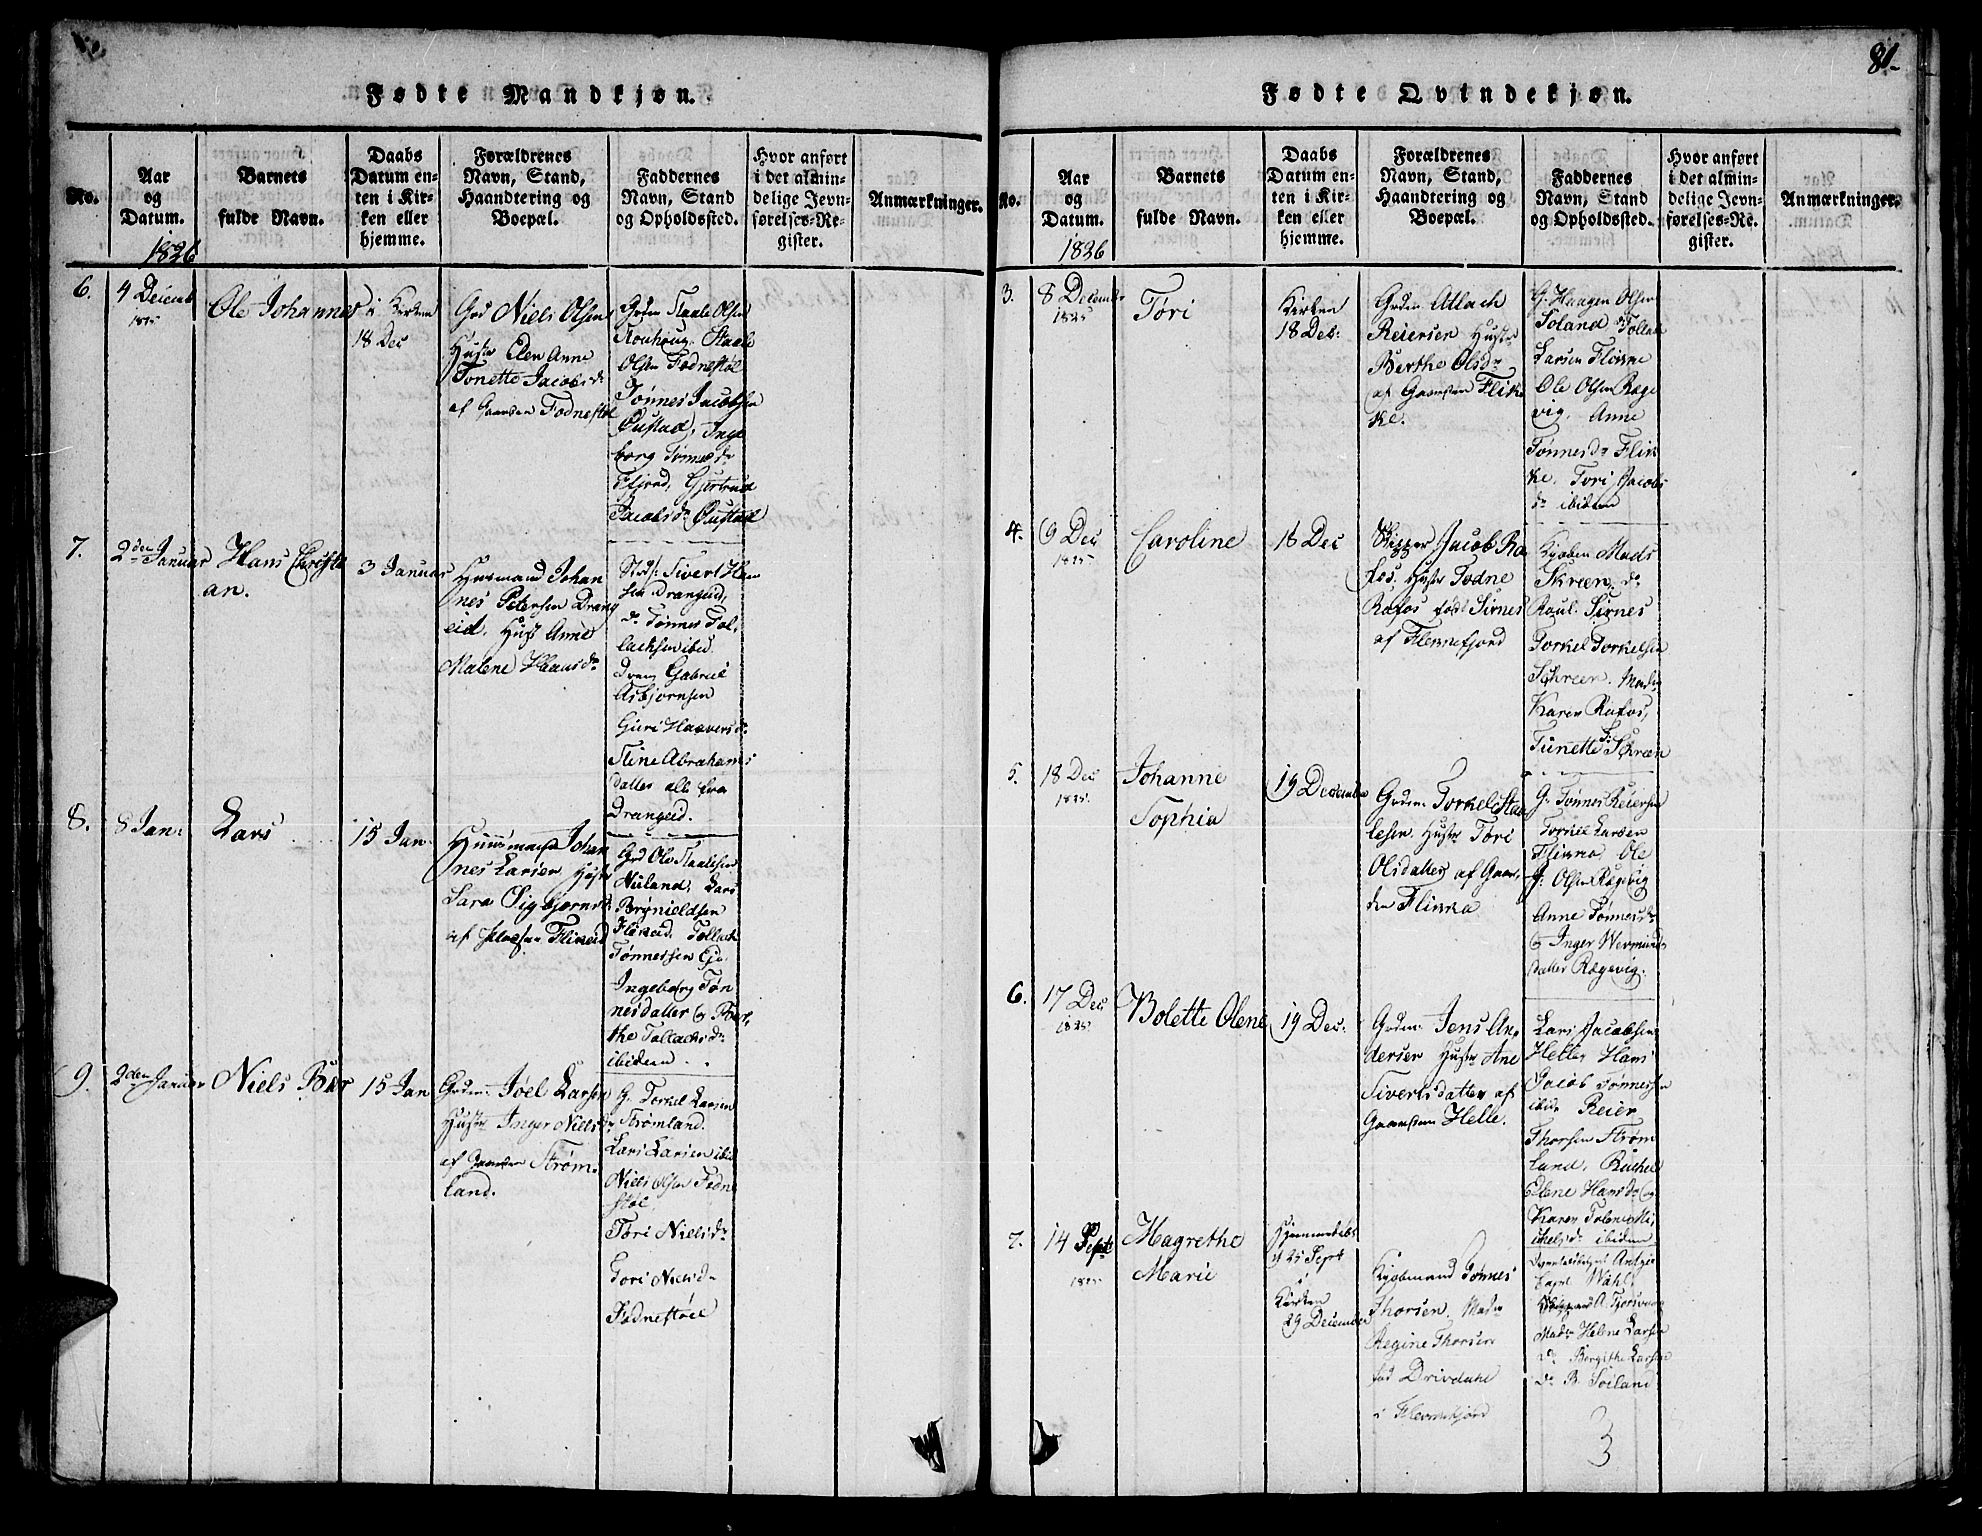 Fødte Mandkjøn.
No.
Aar
og
Datum.
1826
Barnets
fulde Navn.
Daabs
Datum en-
ten i Kir-
ken eller
hjemme.
Forældrenes
Navn, Stand,
Haandtering og
Boepæl.
Faddernes
Navn, Stand
og Opholdssted.
Hvor anført
i det almin-
delige Jevn-
førelses-Re-
gister.
Anmærkninger.
6.
4 Decemb
1825
Ole Johannes
i Kirken
18 Dec
Grd Niels Olsen
Hustr Elen Anne
Tonette Jacobsdr
af Gaarden Fodnestøl
Staale Olsen
Staale
Olsen Fodnestøl
Tønnes Jacobsen
Øustad, Inge
borg Tønnesdr
Fjord, Gjertrud
Jacobsdr Øustad
7.
2den Januar
Hans Christi
an.
3 Januar
Huusmand Johan
nes Petersen Drang
eid. Hust Anne
Malene Hansdr
Sivert Han
sen Drangeid,
dr Tønnes Tol,
lacksen ibid.
Dreng Gabriel
Asbjørnsen
Guri Haaversdr
Stine Abrahams
datter alle fra
Drangeid.
8.
8 Jan:
Lars
15 Jan
Huusmand Johan
nes Larsen Hustr
Sara Sigbjørnsdr
af Fliceid
Grd Ole Staalesen
Nuland, Lars
Brynieldsen
Fliceid, Tollack
Tønnessen
Ingeborg Tøn
nesdatter og Ber,
the Tollacksdr
ibidem.
9.
2den Januar
Niels Baer
15 Jan
Grdm: Joel Larsen
Hustr Inger Nielsdr
af Gaarden Strøm,
land.
G. Torkel Larsen
Strømland.
Lars Larsen ibid
Niels Olsen Fodne
støl
Tori Nielsdr
Tori Nielsdr
Fodnestøel
81
Fødte Qvindekjøn.
No.
Aar
og
Datum.
1826
Barnets
fulde Navn.
Daabs
Datum en-
ten i Kir-
ken eller
hjemme.
Forældrenes
Navn, Stand,
Haandtering og
Boepæl.
Faddernes
Navn, Stand
og Opholdssted.
Hvor anført
i det almin-
delige Jevn-
førelses-Re-
gister.
Anmærkninger.
3.
8 December
1825
Tøri
Kirken
18 Dec:
Grdm Atlach
Reiersen Hustr
Berthe Olsdr
af Gaarden Flik
ke.
G. Haagen Olsen
Soland Tollak
Larsen Flikke
Ole Olsen Ræge
vig, Anne
Tønnesdr Flik
ke. Tori Jacobs
dr ibidem
4.
9 Dec
1825
Caroline
18 Dec
Skipper Jacob Ra
fos, Hustr Todne
Rafos født Sirnes
af Flekkefjord
Kjøbm Mads
Skreen. dr
Poul Sirnes
Torkel Torkelsen
Schreen. Madm
Karen Rafos,
Tünette S. Schreen
5.
18 Dec
1825.
Johanne
Sophia
19 December
Grdm: Torkel Staa
lesen Hustr Tøri
Olsdatter af Gaar,
den Flikka
G. Tønnes Reiersen
Torkel Larsen
Flikka, Ole
Olsen Rægevig
Anne Tønnesdr
og Inger Wermunds
datter Rægevig.
6.
17 Dec
1825.
Bolette Olene
19 Dec.
Grdm: Jens An,
dersen Hustr Ane
Sivertsdatter af
Gaarden Helle.
Lars Jacobsen
Helle, Hans
Jacob Tønnessen
ibid. Reier
Thorsen Strøm
land. Rachel
Olene Hansdr og
Karen Tolene Mi,
chelsdr ibidem
7.
14 Sept
1825
Magrethe
Marie
Hjemmedøbt
d 25 Sept
i
Kirken
29 December
Kjøbmand Tønnes
Thorsen. Madm
Regine Thorsen
fød Drivdahl
i Flekkefjord
Wahl
A. Tjorsvaag
Madm Helene Larsen
dr Bergithe Larsen
dr B. Soiland